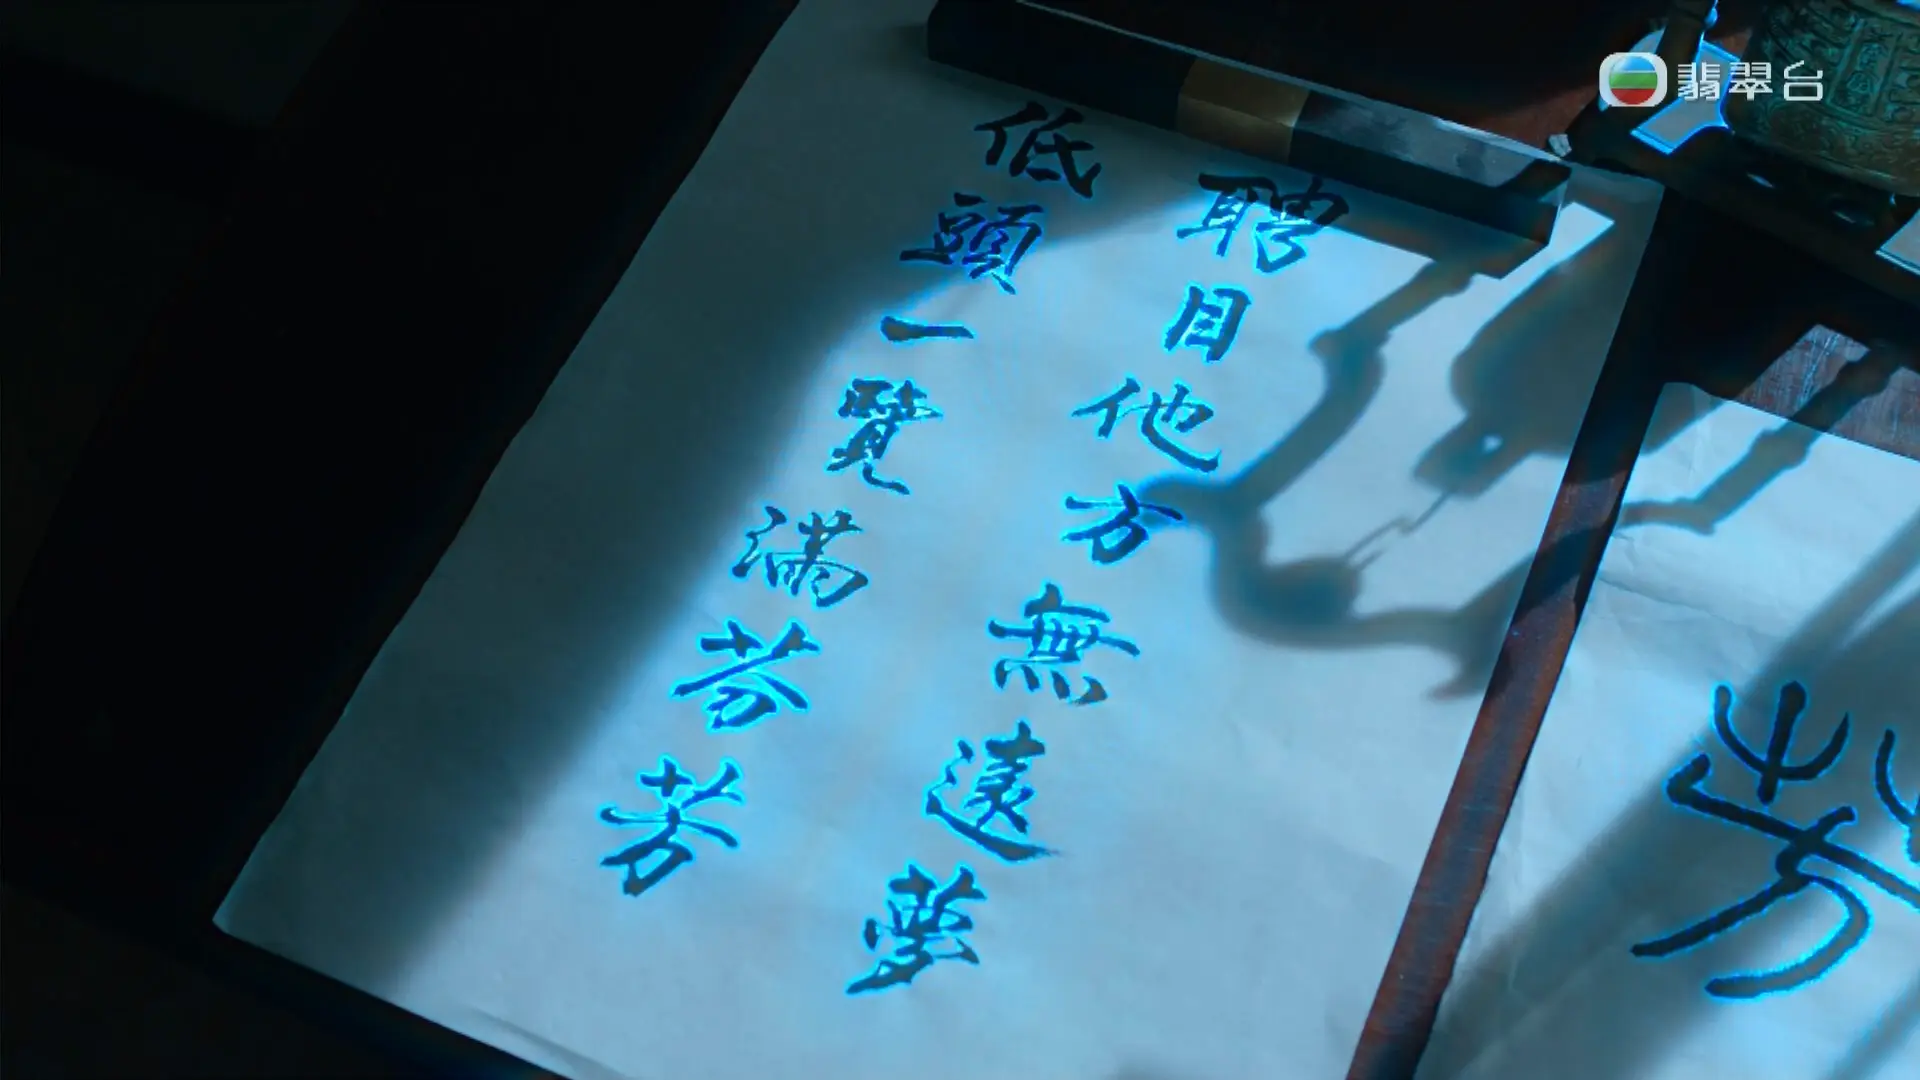 翡翠台
聘目他方無遠夢
低頭一覽滿芬芳
芳